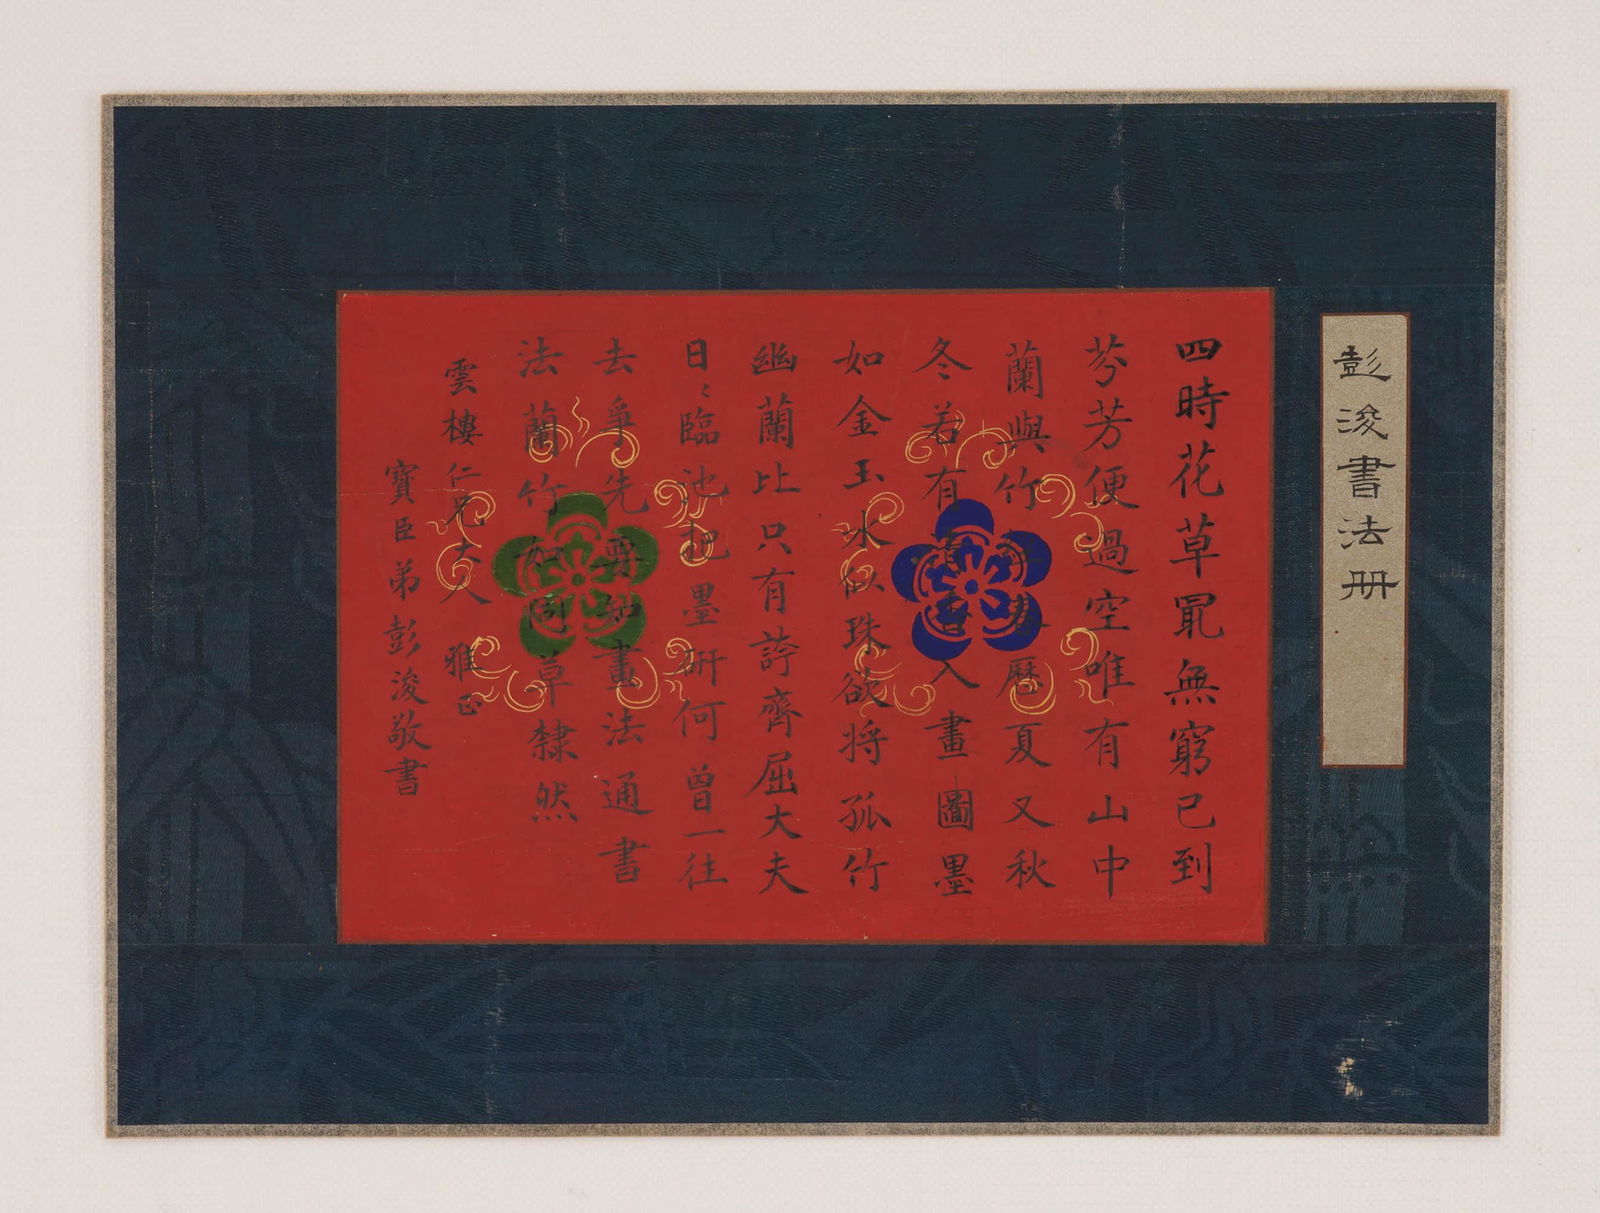 彭浚書法册
四時花草冣無窮已到
芬芳便過空唯有山中
蘭與竹經春歷夏又秋
冬若有清香入畫圖墨
如金玉水似珠欲將孤竹
幽蘭比只有誇齊屈大夫
日〻臨池把墨研何曾一往
去爭先要知畫法通書
法蘭竹如同草隸然
雲樓仁兄大人 雅正
寶臣弟彭浚敬書